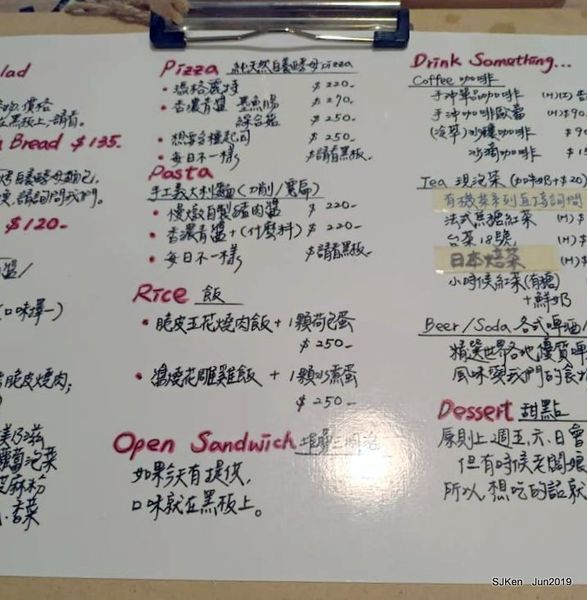 lad
價格
在黑板上，請看。
Bread $135.
$120-
Pizza 純天然自養酵母pizza
・瑪格麗特 $220-
・香濃青醬 墨魚腸 $290-
綜合菇 $250-
・想要各種起司 $250-
・每日不一樣 $請看黑板-
Pasta
手工義大利麵(切削/寬扁)
・慢燉自製豬肉醬 $220-
・香濃青醬+(什麼料) $220-
・每日不一樣 $請看黑板-
Rice 飯
・脆皮五花燒肉飯 + 1顆荷包蛋
$250-
・濃燒花雕雞飯 + 1顆水煮蛋
$250-
Open Sandwich
如果今天有提供，
口味就在黑板上。
(口味擇一)
脆皮燒肉；
美乃滋
蘿蔔泡菜
芝麻粉
香菜
Drink Something...
Coffee 咖啡
手沖單品咖啡 (H)
手沖咖啡歐蕾 (H)$
(冷萃)冰釀咖啡 $90
冰滴咖啡
Tea 現泡茶 (加鮮奶+$20)
有機茶系列直接詢問
法式焦糖紅茶 (H)
台茶18號 (H)$
日本焙茶 (H)$
小時候紅茶(有糖)
+鮮奶
Beer/Soda 各式啤酒/
精選世界各地優質啤
風味與我們的食
Dessert 甜點
原則上週五、六、日會
但有時候老闆娘
所以，想吃的話就
SJKen Jun2019